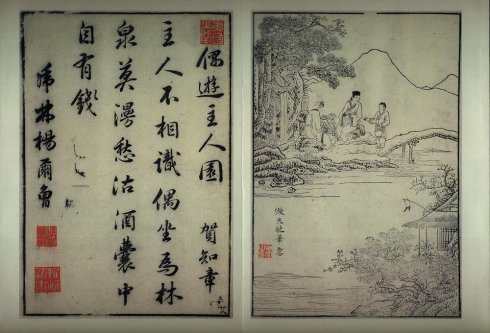 偶遊主人園 賀知章
主人不相識偶坐為林
泉莫漫愁沽酒囊中
自有錢
虎林楊爾曾
倣天池筆意